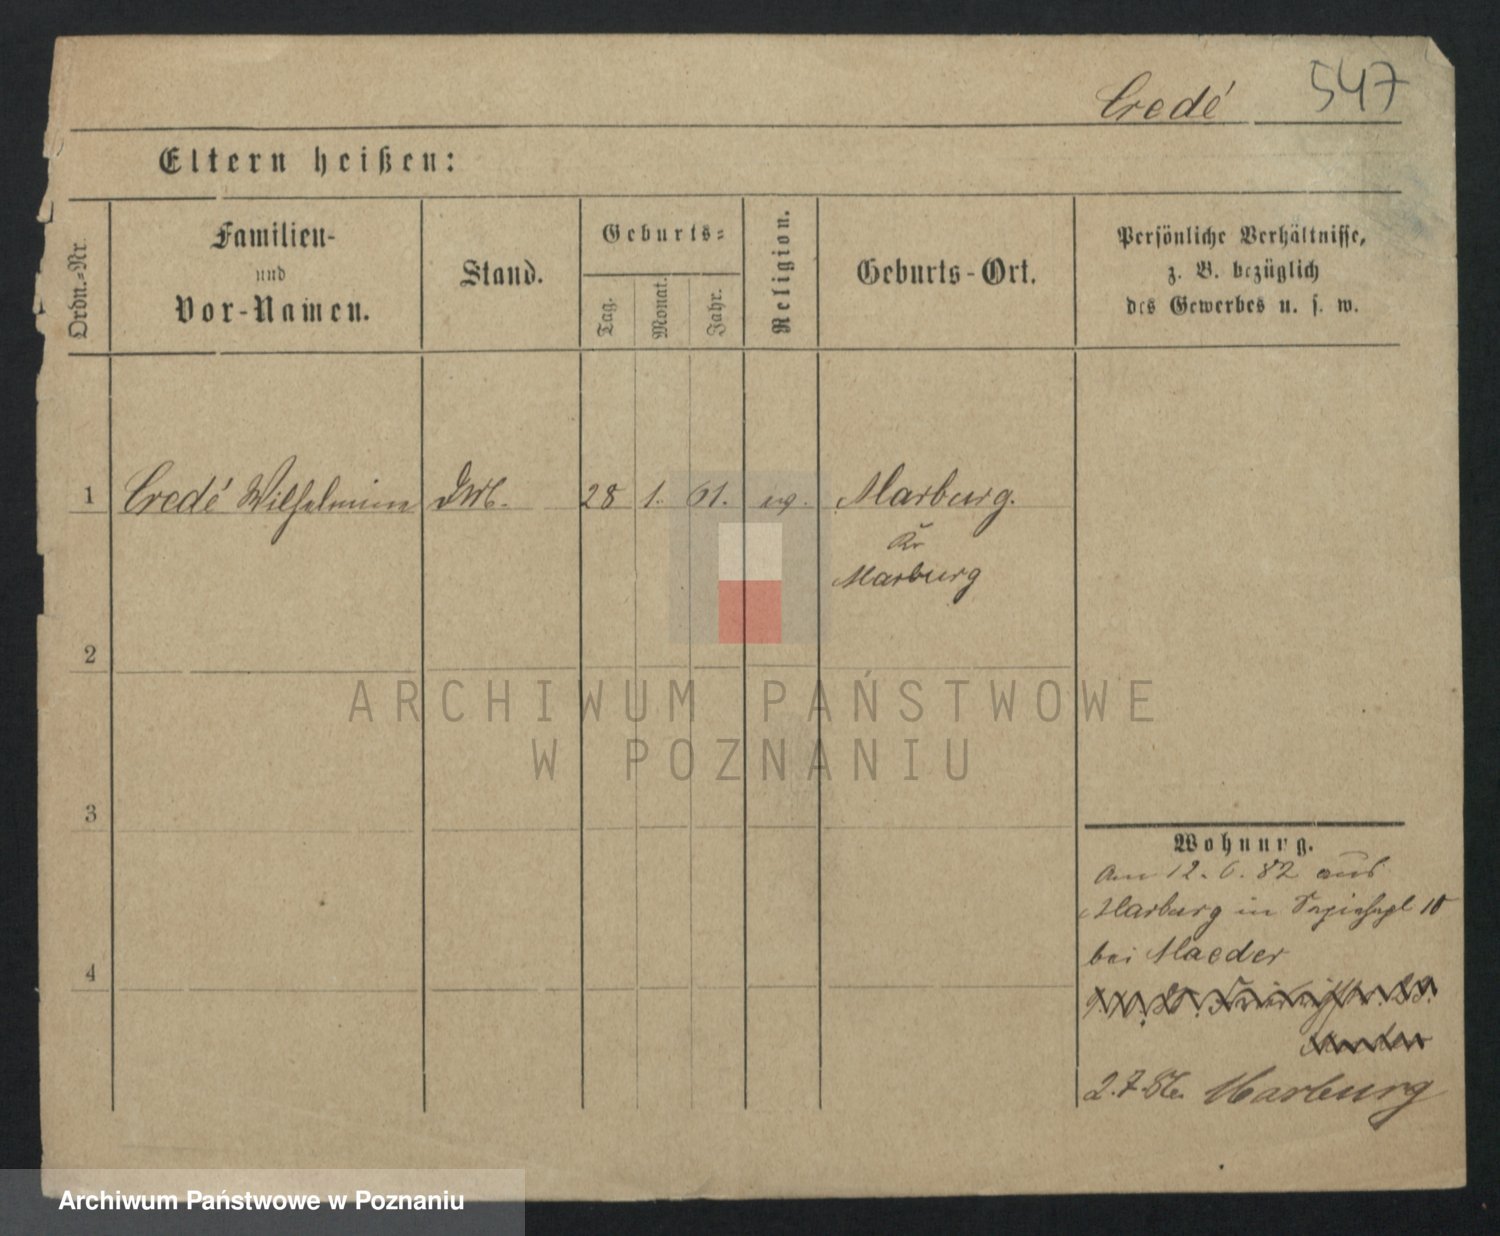 Credé 547
Eltern heißen:
Ordn.-Nr.
Familien-
und
Vor-Namen.
Stand.
Geburts-
Tag.
Monat.
Jahr.
Religion.
Geburts-Ort.
Persönliche Verhältnisse,
z. B. bezüglich
des Gewerbes u. s. w.
1 Credé Wilhelmine 28 1. 61. ev. Marburg.
Kr
Marburg
2
ARCHIWUM PAŃSTWOWE
W POZNANIU
3
Wohnung.
Am 12. 6. 82 aus
Marburg in 10
bei Maeder
4
Maeder
2.7.86. Marburg
Archiwum Państwowe w Poznaniu